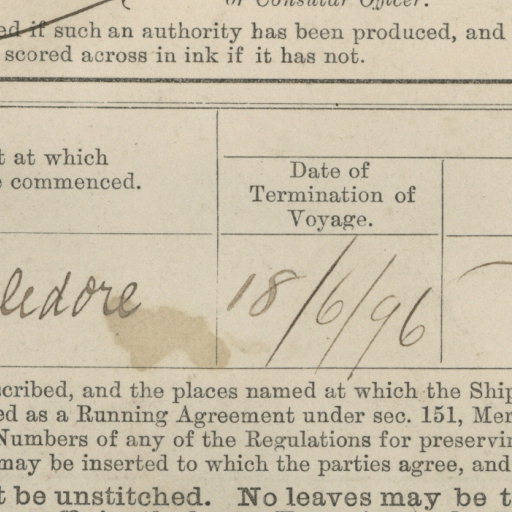 or Consular Officer.
ed if such an authority has been produced, and
scored across in ink if it has not.
t at which
commenced.
Date of
Termination of
Voyage.
ledore
18/6/96
scribed, and the places named at which the Ship
ed as a Running Agreement under sec. 151, Mer
Numbers of any of the Regulations for preservin
may be inserted to which the parties agree, and
t be unstitched. No leaves may be t